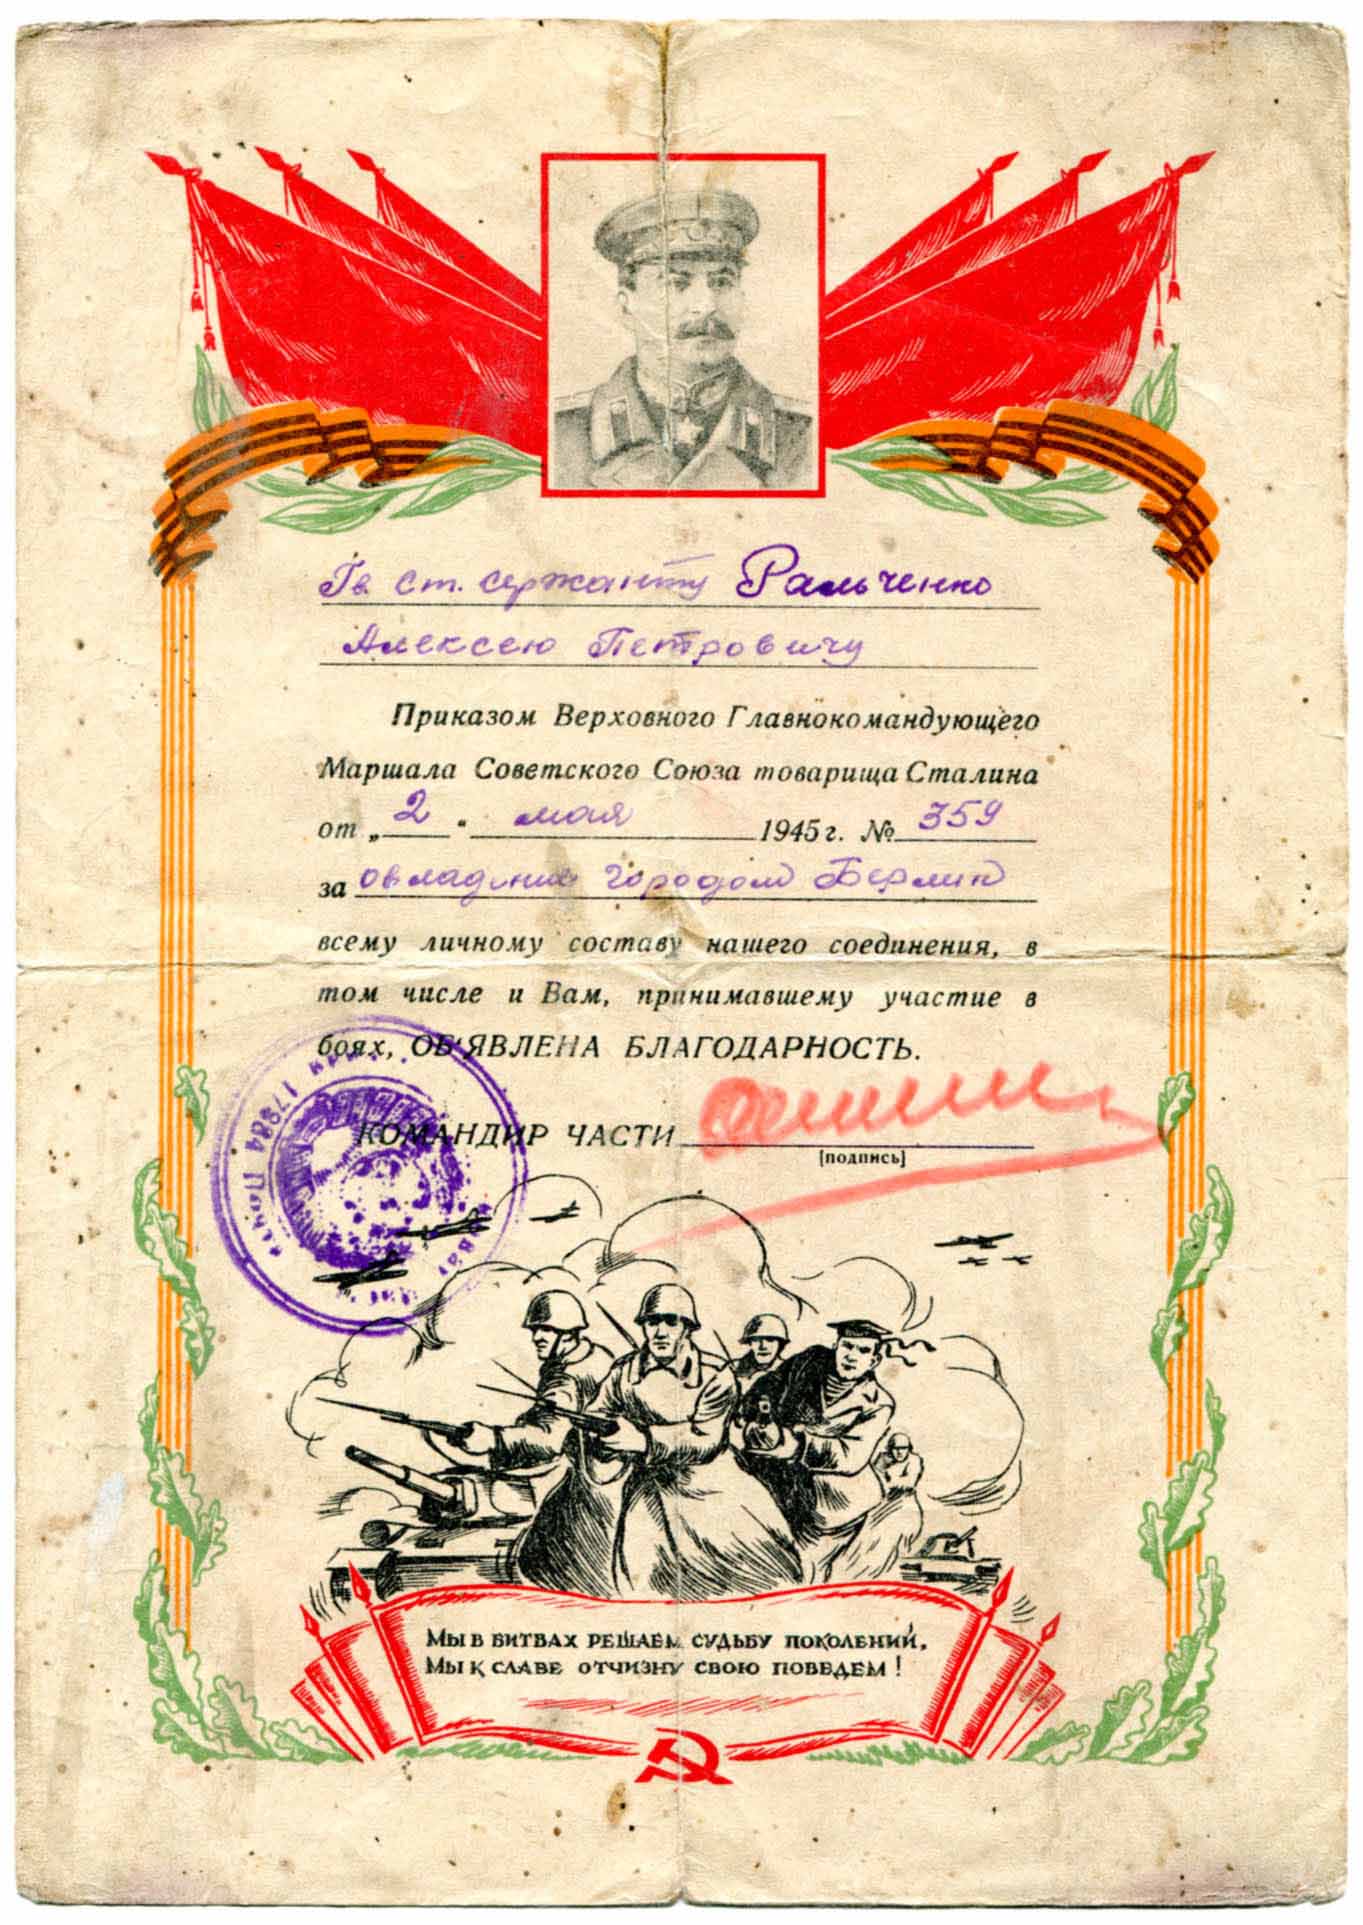 Гв. ст. сержанту Ральченко
Алексею Петровичу
Приказом Верховного Главнокомандующего
Маршала Советского Союза товарища Сталина
от „2“ мая 1945 г. № 359
за овладение городом Берлин
всему личному составу нашего соединения, в
том числе и Вам, принимавшему участие в
боях, ОБ'ЯВЛЕНА БЛАГОДАРНОСТЬ.
КОМАНДИР ЧАСТИ
(подпись)
17984
МЫ В БИТВАХ РЕШАЕМ СУДЬБУ ПОКОЛЕНИЙ,
МЫ К СЛАВЕ ОТЧИЗНУ СВОЮ ПОВЕДЕМ!